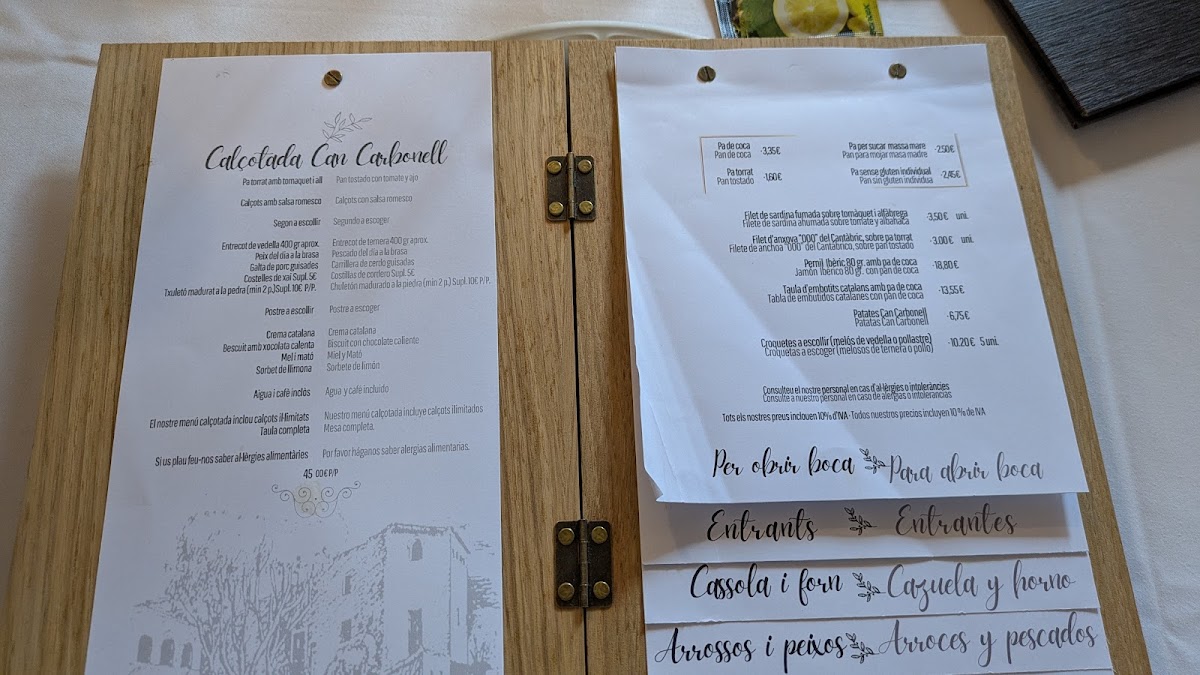 Calçotada Can Carbonell
Pa torrat amb tomaquet i all Pan tostado con tomate y ajo
Calçots amb salsa romesco Calçots con salsa romesco
Segon a escollir Segundo a escoger
Entrecot de vedella 400 gr aprox. Entrecot de ternera 400 gr aprox.
Peix del dia a la brasa Pescado del día a la brasa
Galta de porc guisades Carrillera de cerdo guisadas
Costelles de xai Supl. 5€ Costillas de cordero Supl. 5€
Txuletó madurat a la pedra (min 2 p.) Supl. 10€ P/P. Chuletón madurado a la piedra (min 2 p.) Supl. 10€ P/P.
Postre a escollir Postre a escoger
Crema catalana Crema catalana
Bescuit amb xocolata calenta Biscuit con chocolate caliente
Mel i mató Miel y Mató
Sorbet de llimona Sorbete de limón
Aigua i cafè inclòs Agua y café incluido
El nostre menú calçotada inclou calçots il·limitats Nuestro menú calçotada incluye calçots ilimitados
Taula completa Mesa completa.
Si us plau feu-nos saber al·lèrgies alimentàries Por favor háganos saber alergias alimentarias.
45 00€ P/P
Pa de coca
Pan de coca ·3,35€
Pa torrat
Pan tostado ·1,60€
Pa per sucar massa mare
Pan para mojar masa madre ·2,50€
Pa sense gluten individual
Pan sin gluten individua ·2,45€
Filet de sardina fumada sobre tomàquet i alfàbrega
Filete de sardina ahumada sobre tomate y albahaca ·3,50€ uni.
Filet d'anxova "000" del Cantàbric, sobre pa torrat
Filete de anchoa "000" del Cantábrico, sobre pan tostado ·3,00€ uni.
Pernil Ibèric 80 gr. amb pa de coca
Jamón Ibérico 80 gr. con pan de coca ·18,80€
Taula d'embotits catalans amb pa de coca
Tabla de embutidos catalanes con pan de coca ·13,55€
Patates Can Carbonell
Patatas Can Carbonell ·6,75€
Croquetes a escollir (melós de vedella o pollastre)
Croquetas a escoger (melosos de ternera o pollo) ·10.20€ 5 uni.
Consulteu el nostre personal en cas d'al·lèrgies o intoleràncies
Consulte a nuestro personal en caso de alergias o intolerancias
Tots els nostres preus inclouen 10% d'IVA · Todos nuestros precios incluyen 10 % de IVA
Per obrir boca Para abrir boca
Entrants Entrantes
Cassola i forn Cazuela y horno
Arrossos i peixos Arroces y pescados